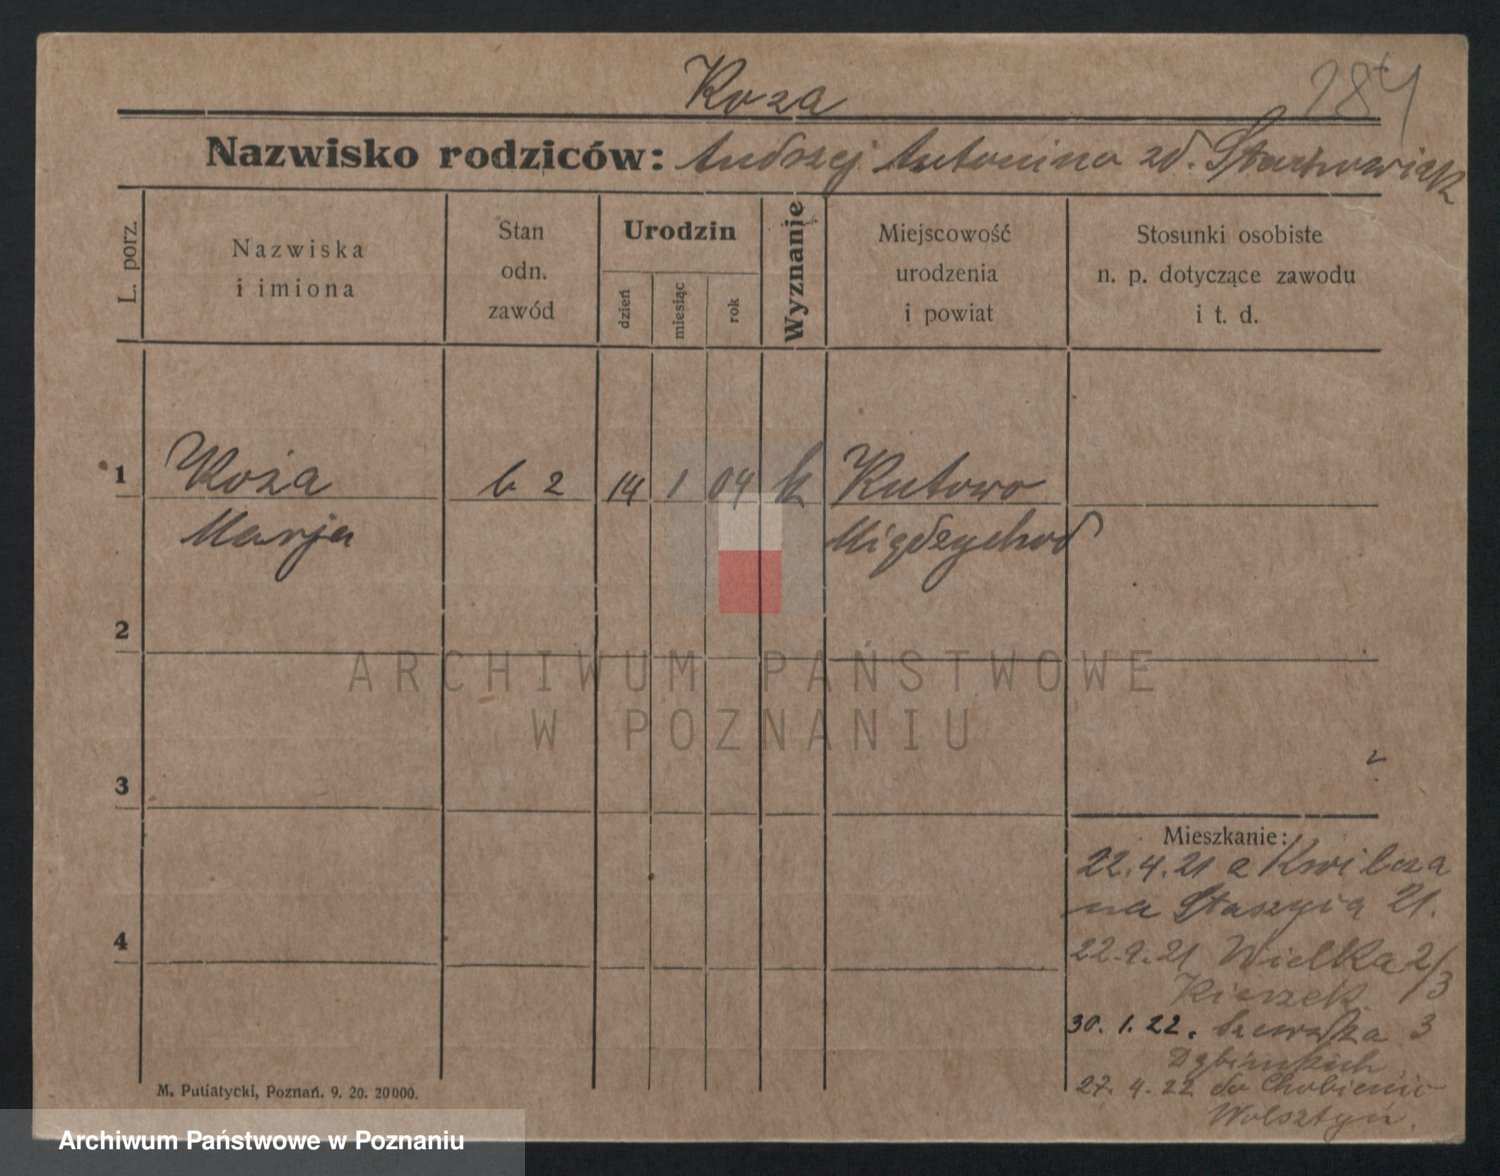 Koza
184
Nazwisko rodziców: Andrzej Antonina zd. Stachowiak
L. porz.
Nazwiska
i imiona
Stan
odn.
zawód
Urodzin
dzień
miesiąc
rok
Wyznanie
Miejscowość
urodzenia
i powiat
Stosunki osobiste
n. p. dotyczące zawodu
i t. d.
1 Koza 14 1 04 k Kutowo
Marja Międzychod
2
ARCHIWUM PAŃSTWOWE
W POZNANIU
3
Mieszkanie:
22.4.21 z Kwilcza
na Staszyca 21.
4
22.9.21 Wielka 2/3
30. 1. 22. Szewska 3
27. 4. 22 do Chobienic
Wolsztyn.
M. Putiatycki, Poznań. 9. 20. 20000.
Archiwum Państwowe w Poznaniu